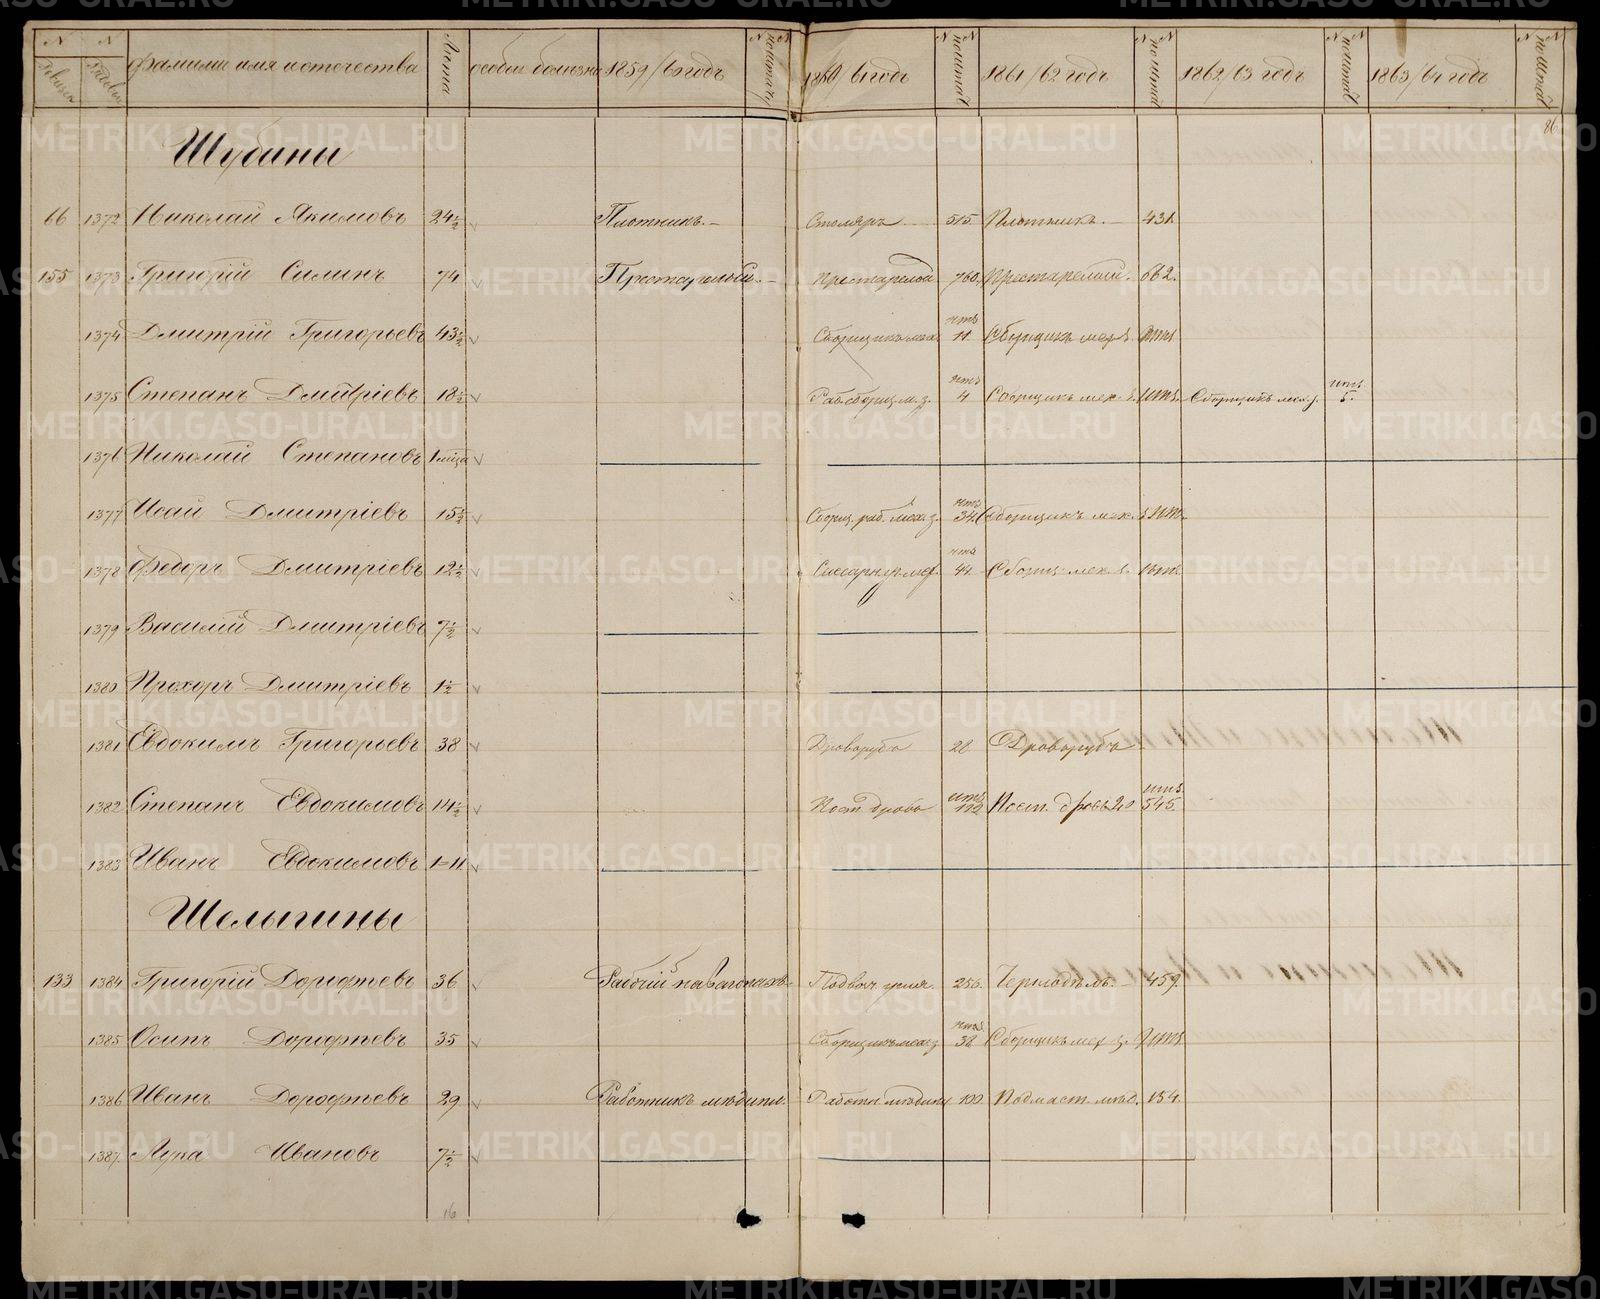 N N фамилии имя и отчества Лѣта особые болезни 1859/60 годъ N по штату N 1860/61 годъ N по штату N 1861/62 годъ N по штату N 1862/63 годъ N по штату N 1863/64 годъ N по штату N
86
Шубины
66 1372 Николай Якимовъ 24½ Плотникъ.— Столяръ 515. Плотникъ.— 431.
155 1373 Григорій Силинъ 74 Престарелый.— Престарелой 760. Престарелый. 662.
1374 Дмитрій Григорьевъ 43½ Сборщикъ мех. 11. Сборщикъ мех.
1375 Степанъ Дмитріевъ 18½ Раб. сборщ. м. з. 4 Сборщикъ мех. Сборщикъ мех. з. 5.
1376 Николай Степановъ 1 мѣся
1377 Исай Дмитріевъ 15½ Сборщ. раб. мех. з. 34. Сборщикъ мех.
1378 Федоръ Дмитріевъ 12½ 44. Сборщ. мех.
1379 Василій Дмитріевъ 7½
1380 Прохоръ Дмитріевъ 1½
1381 Евдокимъ Григорьевъ 38 Дроворубъ 28 Дроворубъ
1382 Степанъ Евдокимовъ 14½ Пост. дровъ Пост. дровъ 545.
1383 Иванъ Евдокимовъ 1=11.
Шелыгины
133 1384 Григорій Дорофѣевъ 36 Рабочій на вагонахъ. 256. 459.
1385 Осипъ Дорофѣевъ 35 Сборщикъ мех. з. 38 Сборщикъ мех. з.
1386 Иванъ Дорофѣевъ 29 Работникъ мѣдипл. Работн. мѣдипл. 100 Подмаст. мѣд. 154.
1387. Лука Ивановъ 7½
METRIKI.GASO-URAL.RU